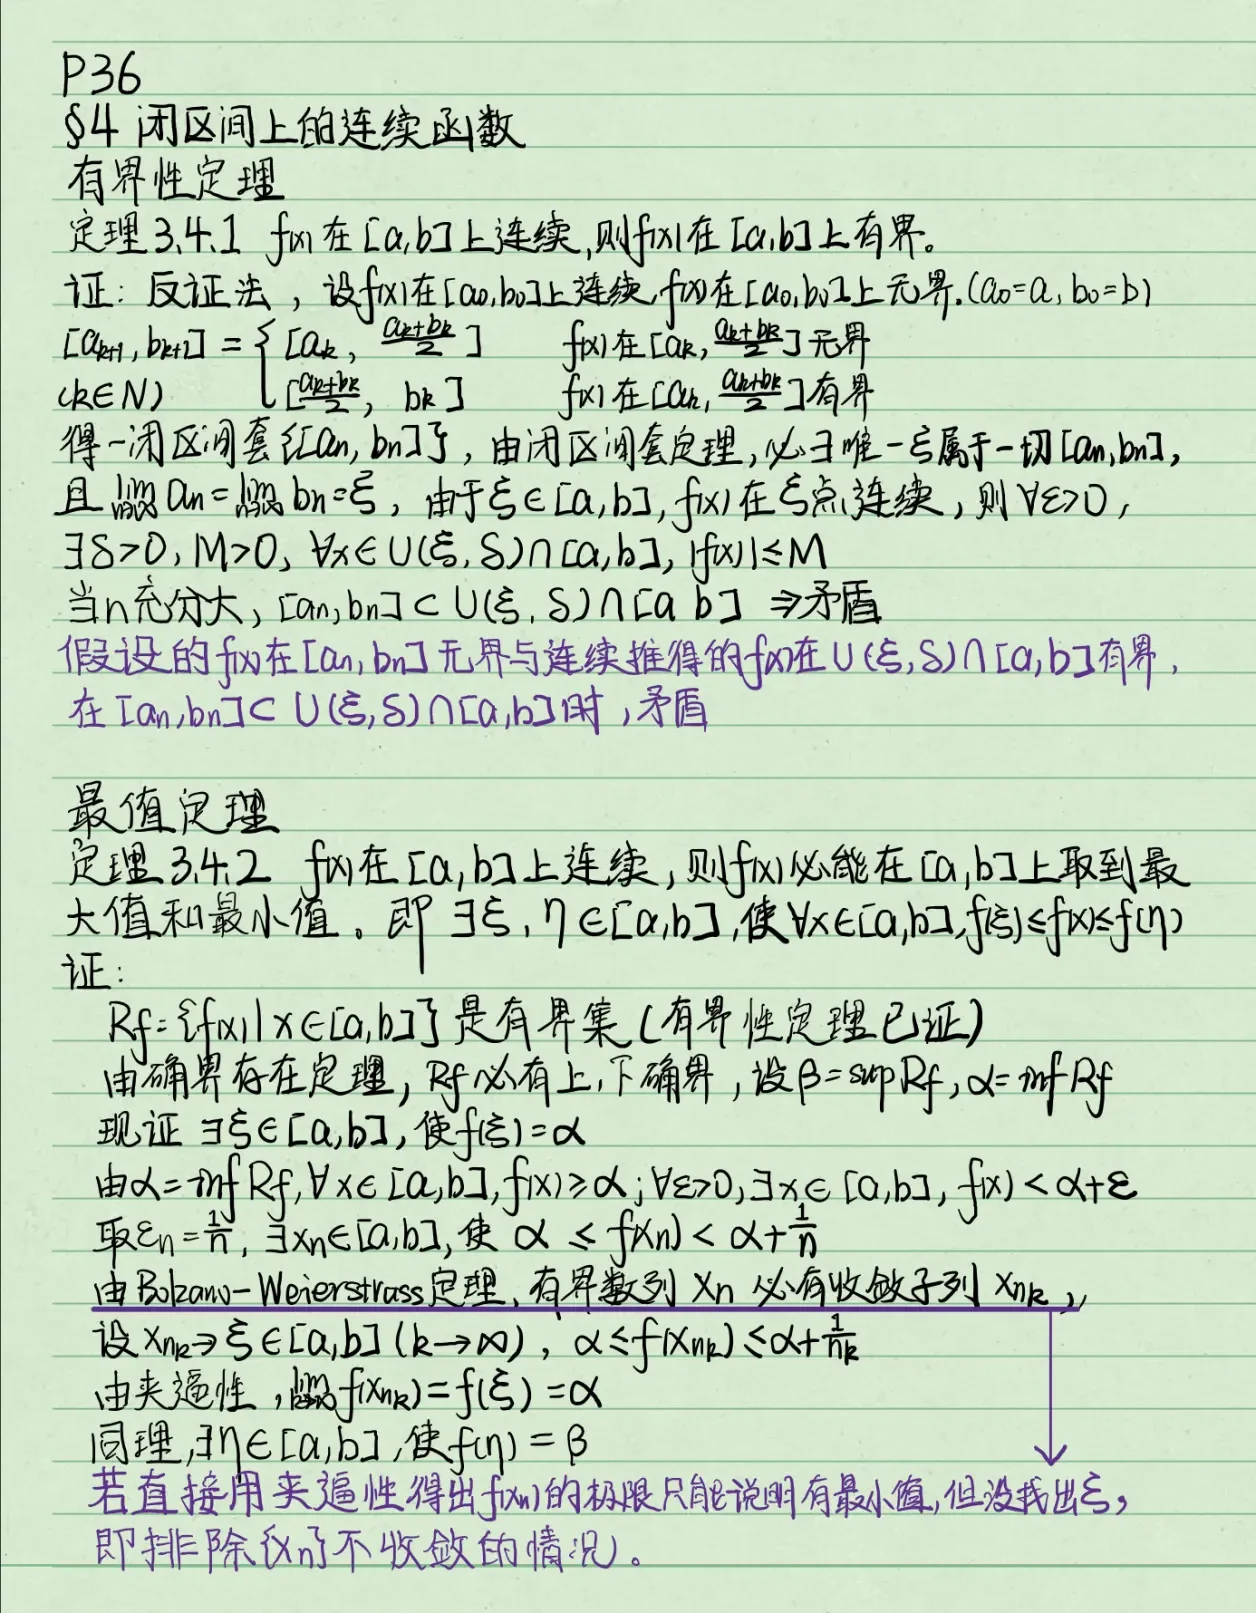 P36
§4 闭区间上的连续函数
有界性定理
定理3.4.1 f(x)在[a,b]上连续,则f(x)在[a,b]上有界。
证: 反证法, 设f(x)在[a₀,b₀]上连续,f(x)在[a₀,b₀]上无界.(a₀=a, b₀=b)
[aₖ₊₁, bₖ₊₁] = { [aₖ, (aₖ+bₖ)/2] f(x)在[aₖ, (aₖ+bₖ)/2]无界
(k∈N) [(aₖ+bₖ)/2, bₖ] f(x)在[aₖ, (aₖ+bₖ)/2]有界
得一闭区间套{[an, bn]}, 由闭区间套定理,必∃唯一ξ属于一切[an,bn],
且 lim n→∞ an = lim n→∞ bn = ξ, 由于ξ∈[a,b], f(x)在ξ点连续, 则∀ε>0,
∃δ>0, M>0, ∀x∈U(ξ,δ)∩[a,b], |f(x)|≤M
当n充分大, [an,bn]⊂U(ξ,δ)∩[a b] ⇒矛盾
假设的f(x)在[an, bn]无界与连续推得的f(x)在U(ξ,δ)∩[a,b]有界,
在[an,bn]⊂U(ξ,δ)∩[a,b]时,矛盾
最值定理
定理3.4.2 f(x)在[a,b]上连续,则f(x)必能在[a,b]上取到最
大值和最小值。即∃ξ,η∈[a,b],使∀x∈[a,b],f(ξ)≤f(x)≤f(η)
证:
Rf={f(x)|x∈[a,b]}是有界集(有界性定理已证)
由确界存在定理, Rf必有上,下确界, 设β=supRf, α=infRf
现证∃ξ∈[a,b], 使f(ξ)=α
由α=infRf,∀x∈[a,b],f(x)≥α;∀ε>0,∃x∈[a,b], f(x)<α+ε
取εn=1/n, ∃xn∈[a,b],使 α≤f(xn)<α+1/n
由Bolzano-Weierstrass定理,有界数列xn必有收敛子列xnₖ,
设xnₖ→ξ∈[a,b](k→∞), α≤f(xnₖ)≤α+1/nₖ
由夹逼性, lim k→∞ f(xnₖ)=f(ξ)=α
同理,∃η∈[a,b],使f(η)=β
若直接用夹逼性得出f(xn)的极限只能说明有最小值,但没找出ξ,
即排除{xn}不收敛的情况。